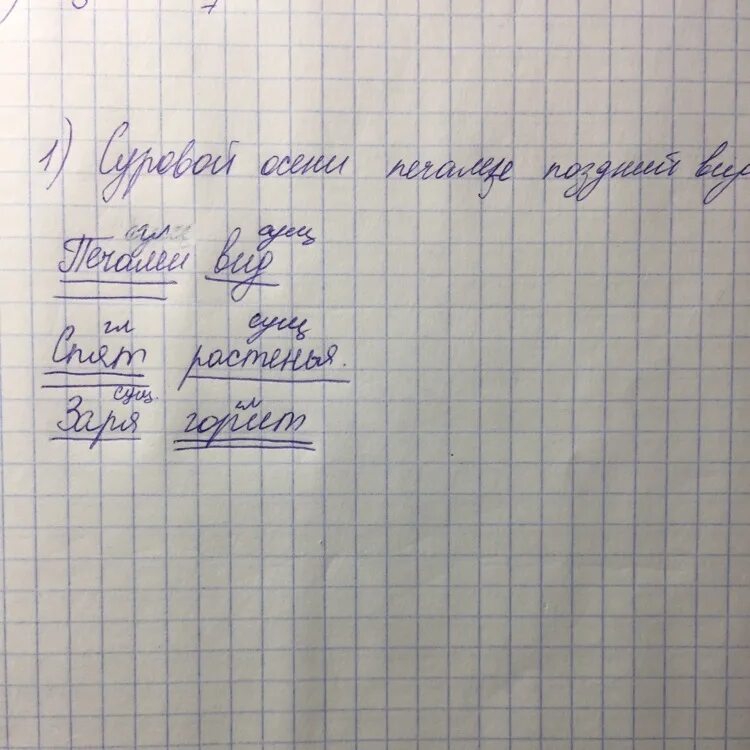 1) Суровой осени печален поздний вид
гл сущ
Печален вид
гл сущ
Спят растенья.
сущ. гл
Заря горит